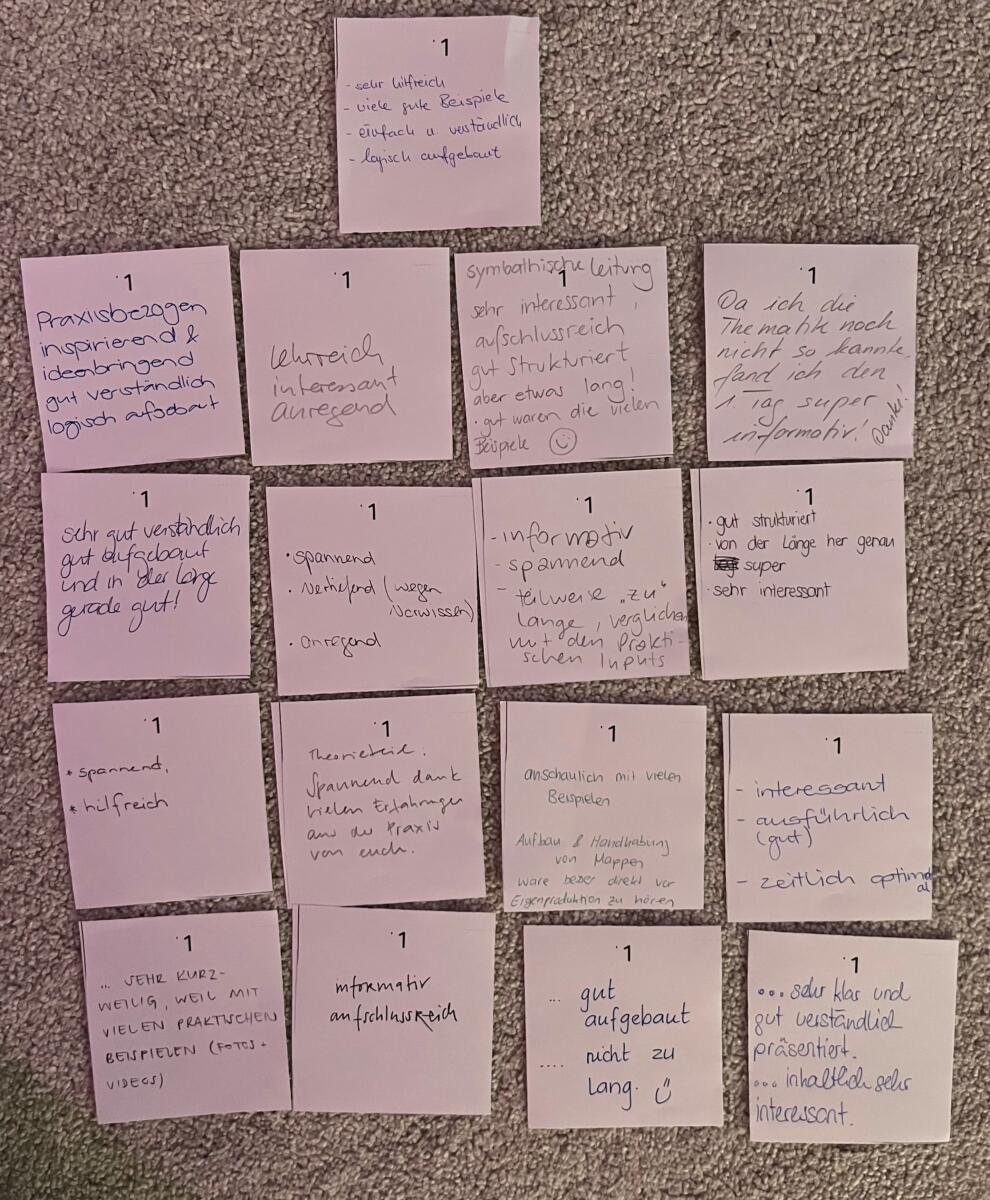 1
- sehr hilfreich
- viele gute Beispiele
- einfach u. verständlich
- logisch aufgebaut
1
Praxisbezogen
inspirierend &
ideenbringend
gut verständlich
logisch aufgebaut
1
lehrreich
interessant
anregend
symbathische Leitung
1
sehr interessant,
aufschlussreich
gut strukturiert
aber etwas lang!
· gut waren die vielen
Beispiele ☺
1
Da ich die
Thematik noch
nicht so kannte,
fand ich den
1. Tag super
informativ! Danke!
1
sehr gut verständlich
gut aufgebaut
und in der Länge
gerade gut!
1
· spannend
· vertiefend (wegen
Vorwissen)
· anregend
1
- informativ
- spannend
- teilweise „zu"
lange, verglichen
mit den Prakti-
schen Inputs
1
· gut strukturiert
· von der Länge her genau
super
· sehr interessant
1
* spannend,
* hilfreich
1
Theorieteil:
Spannend dank
vielen Erfahrungen
aus der Praxis
von euch.
1
anschaulich mit vielen
Beispielen
Aufbau & Handhabung
von Mappen
wäre besser direkt vor
Eigenproduktion zu hören
1
- interessant
- ausführlich
(gut)
- zeitlich optimal
1
... SEHR KURZ-
WEILIG, WEIL MIT
VIELEN PRAKTISCHEN
BEISPIELEN (FOTOS +
VIDEOS)
1
informativ
aufschlussreich
1
... gut
aufgebaut
.... nicht zu
lang. ü
1
... sehr klar und
gut verständlich
präsentiert.
... inhaltlich sehr
interessant.